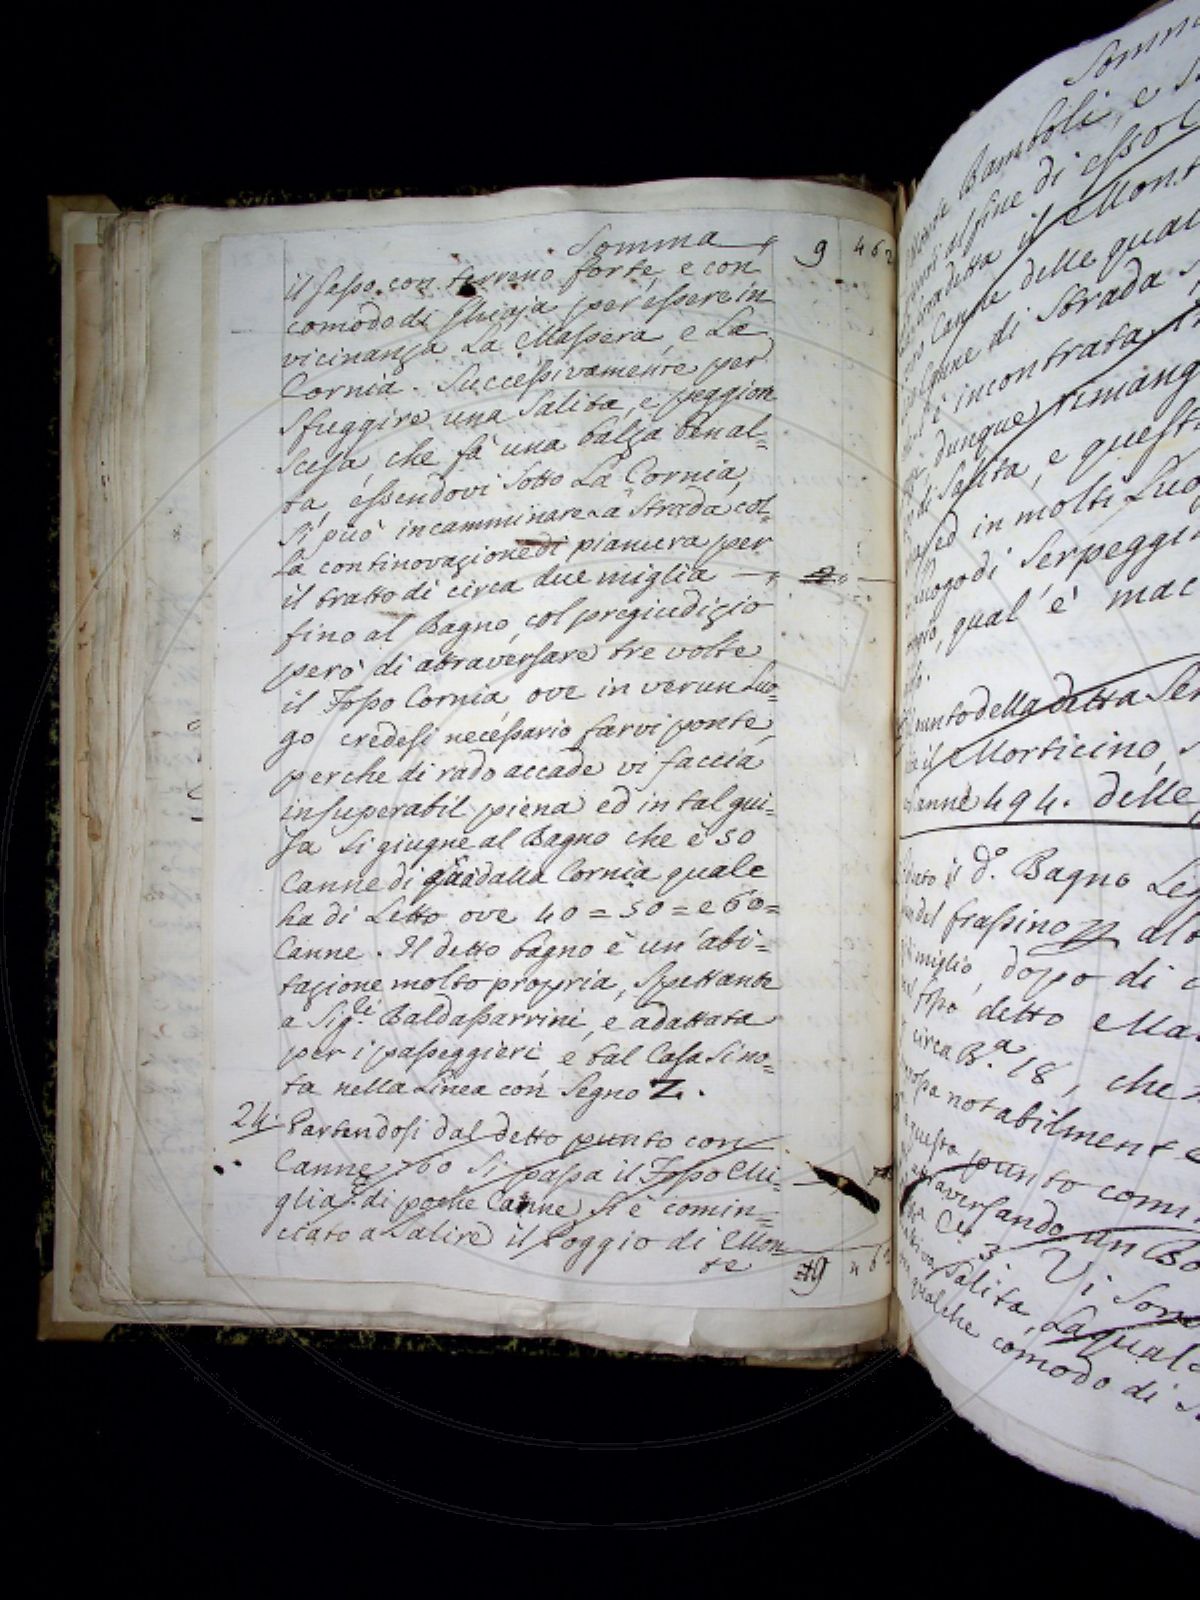 Somma 9 462
il sasso con terreno forte, e con
comodo di Ghiaja per essere in
vicinanza La Massera, e La
Cornia. Successivamente per
sfuggire una Salita, e peggior
scesa che fà una balza ben al=
ta, essendovi sotto La Cornia,
si può incamminare La Strada col=
la continovazione di pianura per
il tratto di circa due miglia
fino al Bagno, col pregiudizio
però di attraversare tre volte
il Fosso Cornia ove in verun Luo=
go credesi necessario farvi ponte,
perche di rado accade vi faccia
insuperabil piena ed in tal gui=
sa si giugne al Bagno che è 50
Canne di quà dalla Cornia quale
ha di Letto ove 40 = 50 = e 60 =
Canne. Il detto bagno è un'abi=
tazione molto propria, spettante
a Sig.ri Baldassarrini, e adattata
per i passeggieri, e tal Casa si no=
ta nella Linea con Segno Z.
24. Partendosi dal detto punto con
Canne 700 si passa il Fosso Mi=
glia di poche Canne si è comin=
ciato a Salire il Poggio di Mon=
te
9 46
Somma
Bamboli, e
al fine di esso
detta il Mont
Canne delle qua
di Strada
è incontrata
dunque rimang
di Salita, e quest
ed in molti Luo
Luogo di Serpeggi
qual' è mac
punto della detta Se
il Morticino,
Canne 494. delle
il d.o Bagno
del frassino
miglio, dopo di
detto Ma
circa B.a 18, che
notabilment
questo punto com
attraversando un Bo
Ce 3 Vi sono
Salita, La quale
qualche comodo di